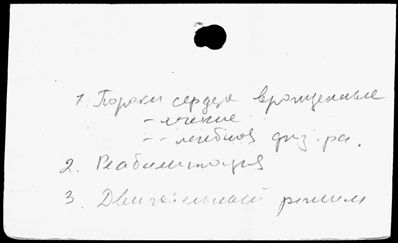 1. Пороки сердца врожденные
- лечение
-- лечебная физ-ра.
2. Реабилитация
3. Двигательный режим